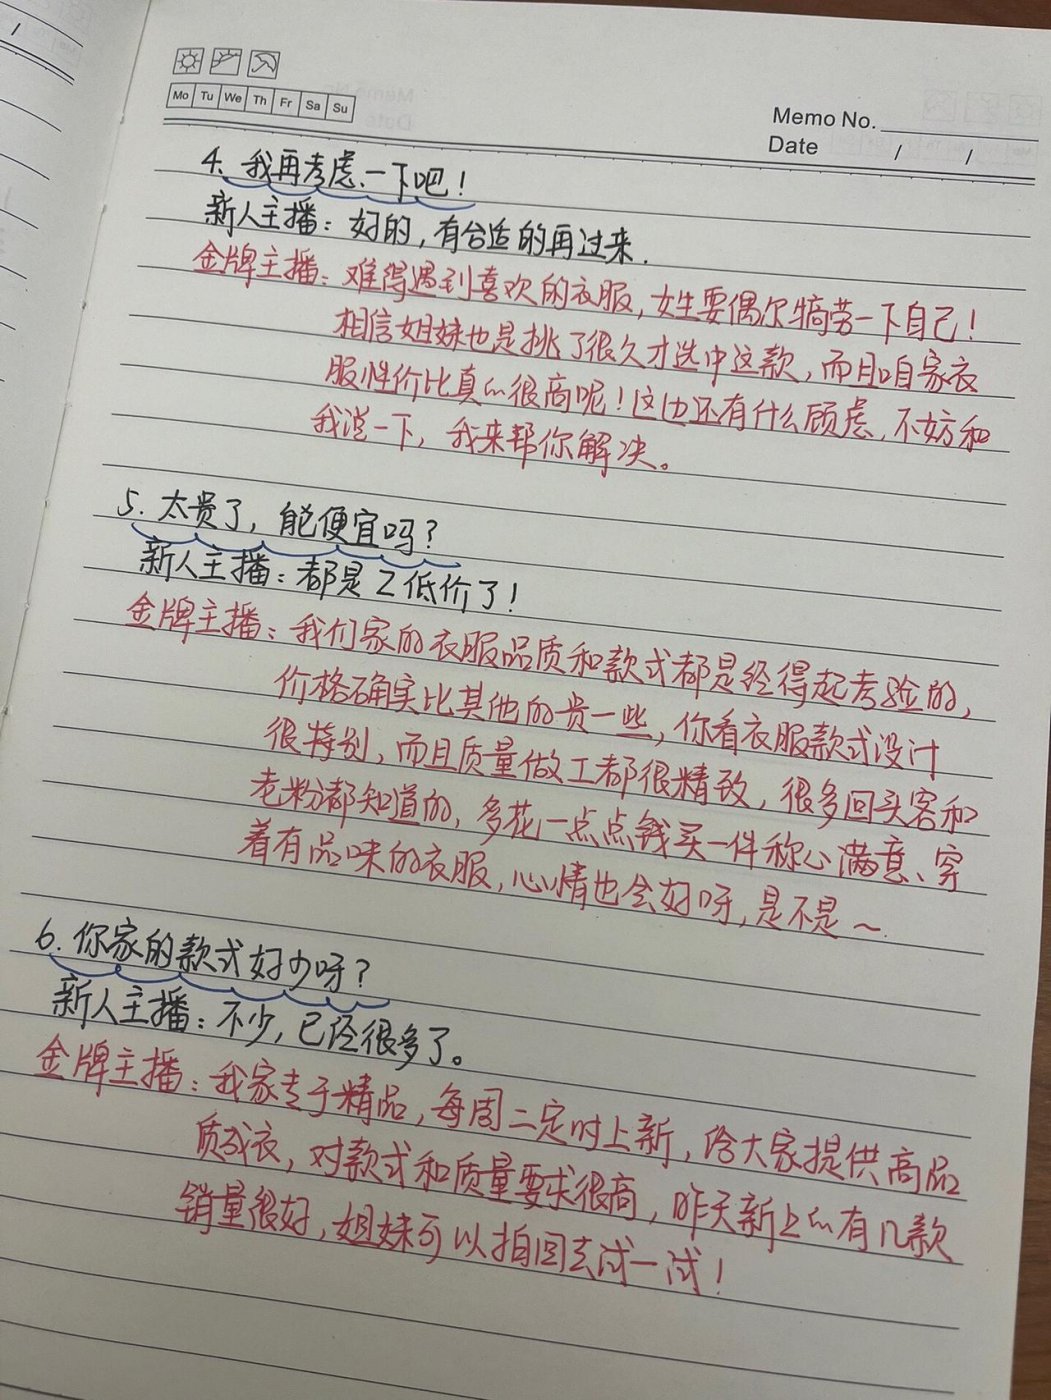 Mo Tu We Th Fr Sa Su
Memo No.
Date / /
4. 我再考虑一下吧!
新人主播: 好的, 有合适的再过来.
金牌主播: 难得遇到喜欢的衣服, 女生要偶尔犒劳一下自己!
相信姐妹也是挑了很久才选中这款, 而且咱家衣
服性价比真的很高呢! 这边还有什么顾虑, 不妨和
我说一下, 我来帮你解决。
5. 太贵了, 能便宜吗?
新人主播: 都是Z低价了!
金牌主播: 我们家的衣服品质和款式都是经得起考验的,
价格确实比其他的贵一些, 你看衣服款式设计
很特别, 而且质量做工都很精致, 很多回头客和
老粉都知道的, 多花一点点钱买一件称心满意、穿
着有品味的衣服, 心情也会好呀, 是不是~
6. 你家的款式好少呀?
新人主播: 不少, 已经很多了。
金牌主播: 我家专于精品, 每周二定时上新, 给大家提供高品
质成衣, 对款式和质量要求很高, 昨天新上的有几款
销量很好, 姐妹可以拍回去试一试!